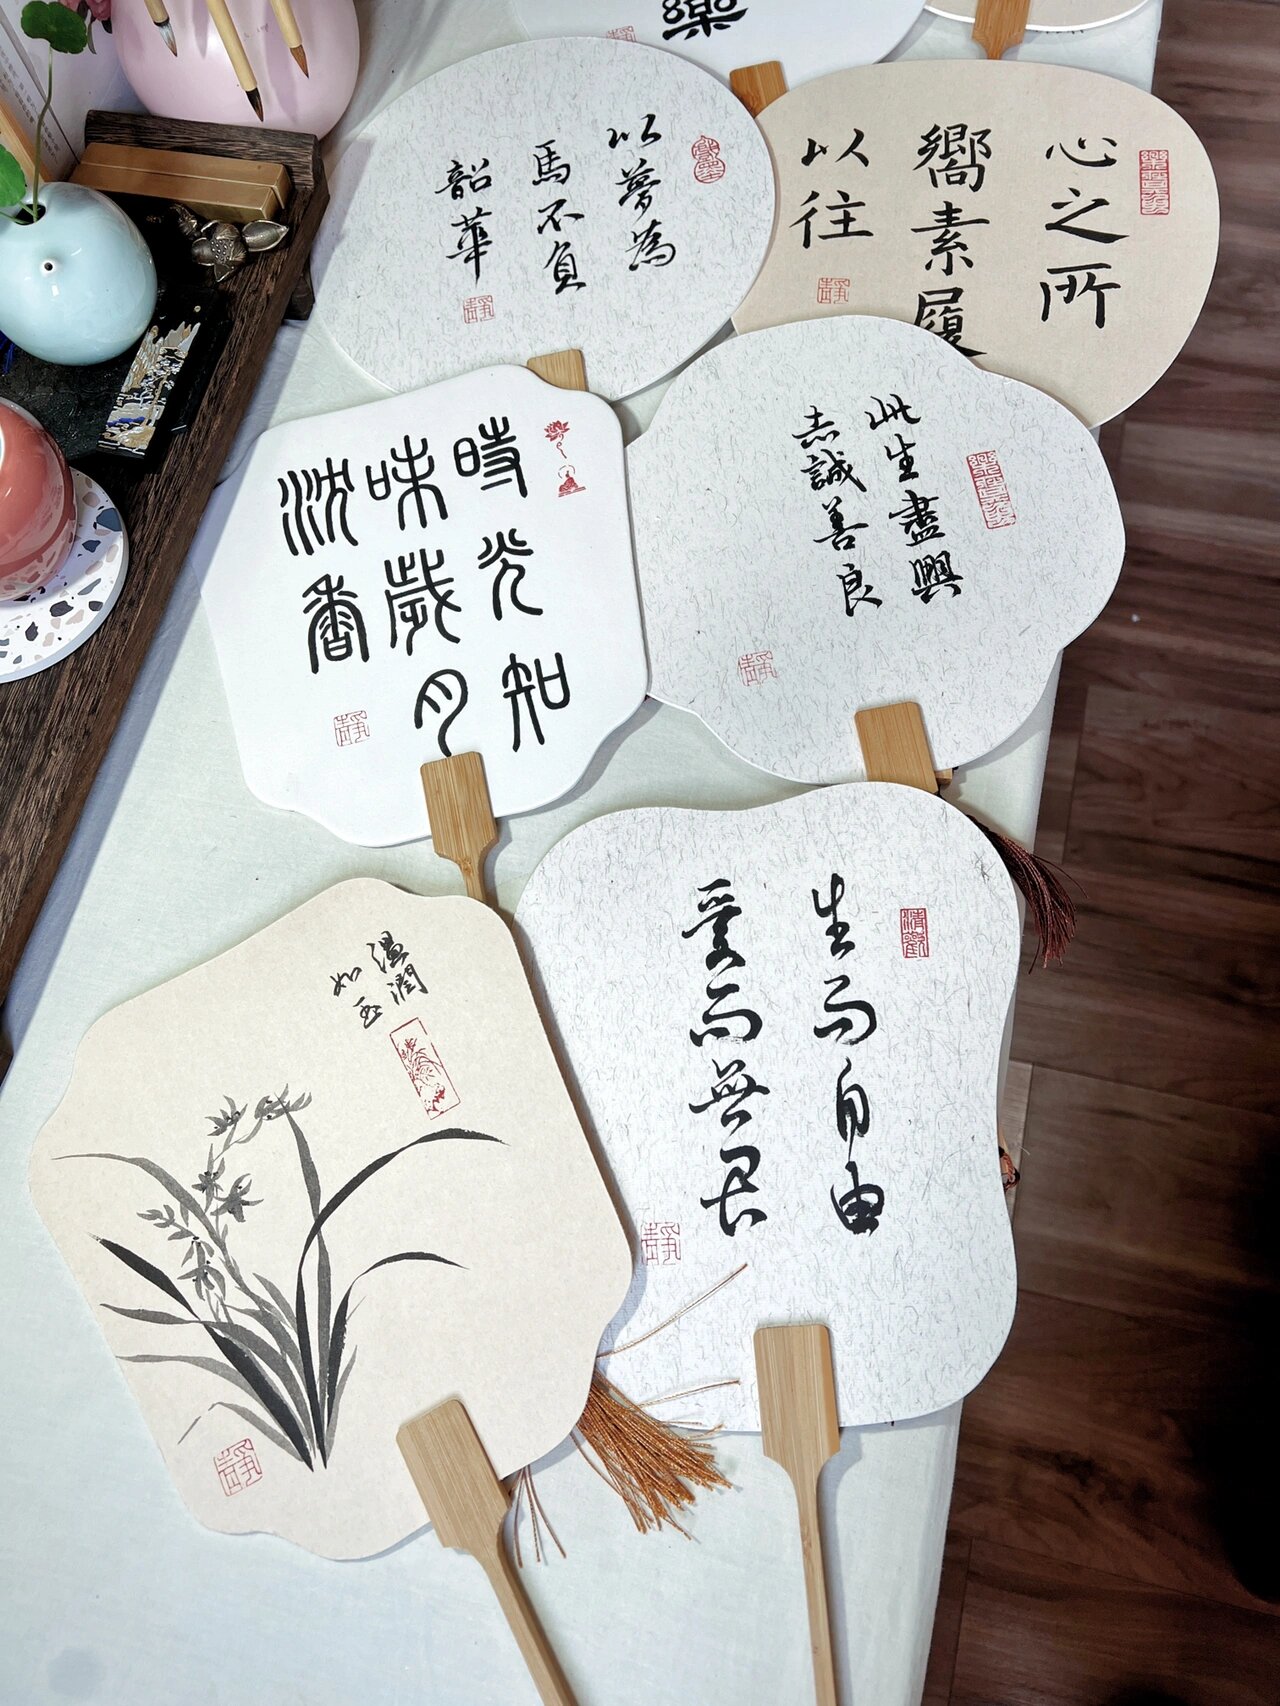 樂
以夢為
馬不負
韶華
靜
心之所
嚮素履
以往
靜
時光知
味歲月
沈香
靜
此生盡興
志誠善良
靜
溫潤
如玉
靜
生而自由
愛而無畏
清歡
靜